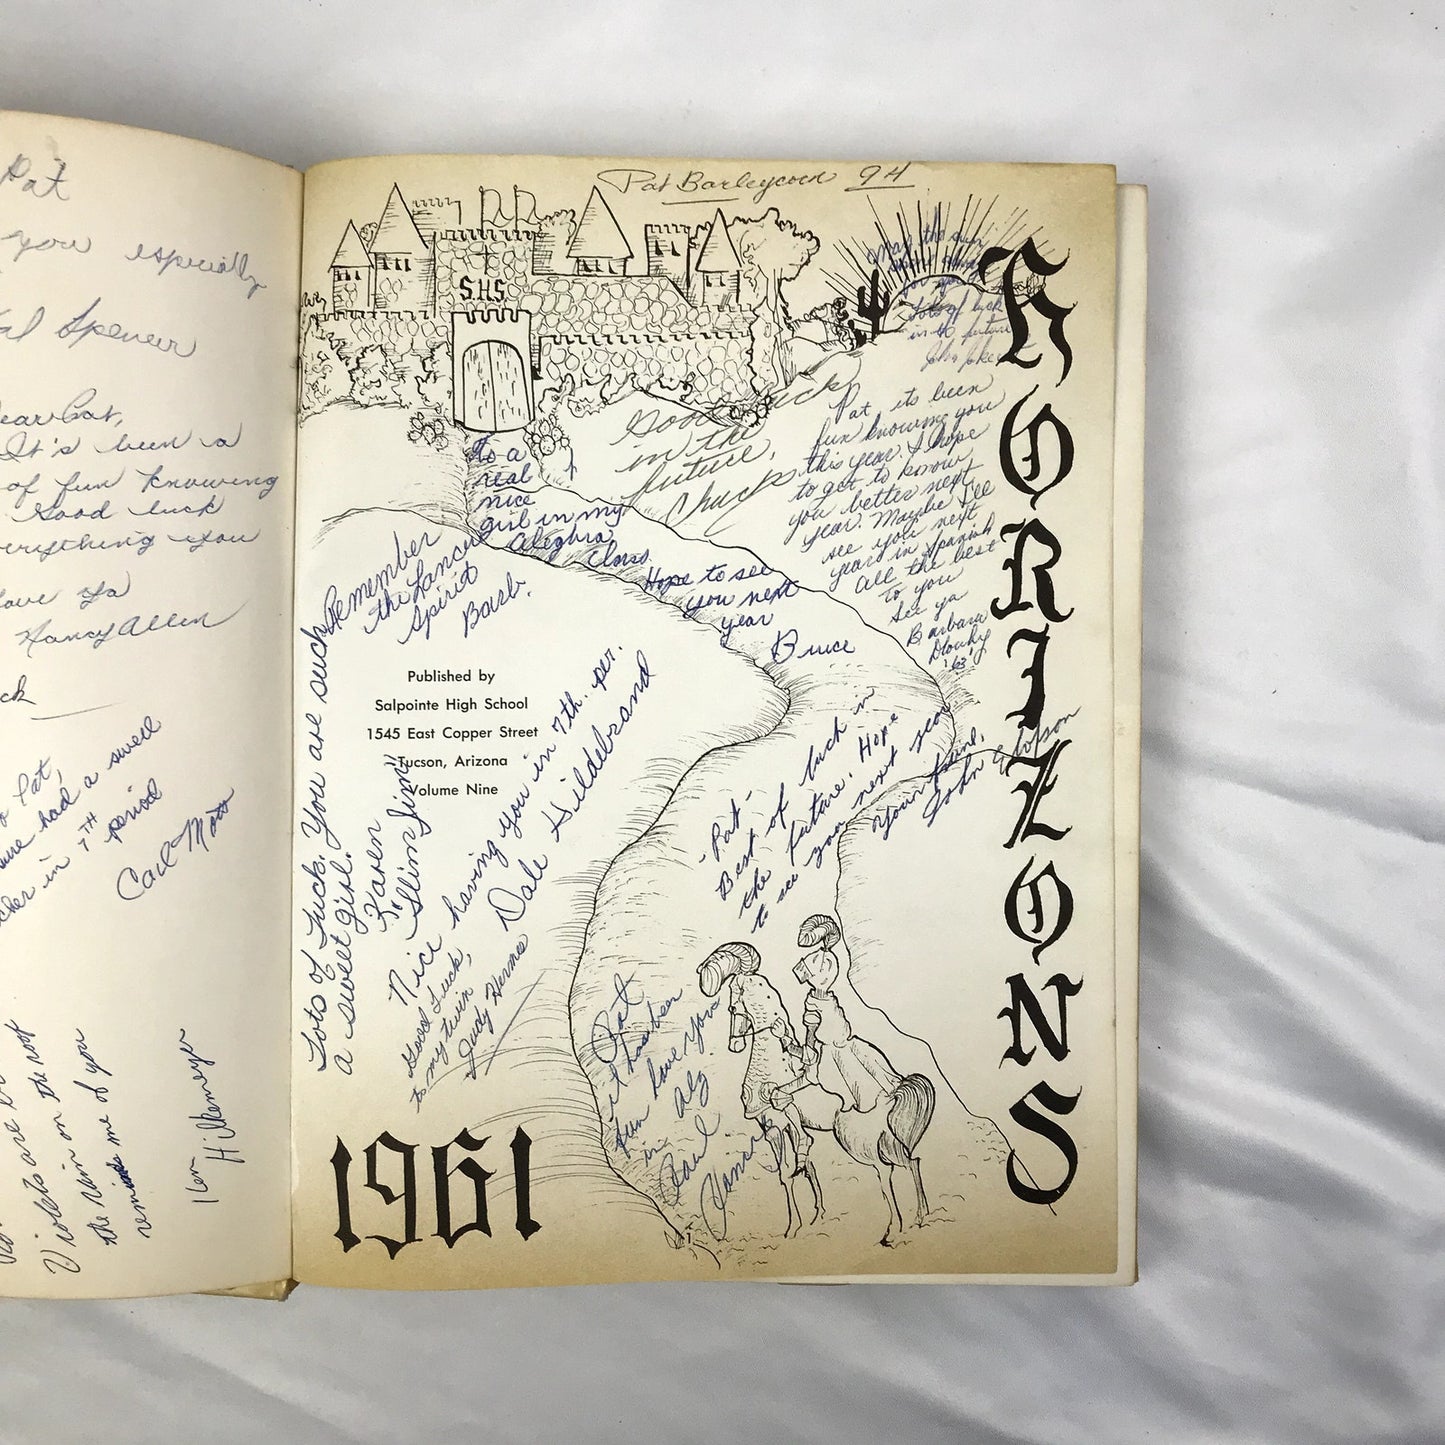 Pat
you especially
Spencer
It's been a
of fun knowing
Good luck
you
Nancy Allen
Pat,
had a swell
in 7TH period
Carl Motts
Violets on the roof
the rain on you
me of you
Ken Hilkemeyer
Pat Barleycorn 9H
S.H.S.
May the sun
Lots of luck
in the future
John
Good luck
in the
future,
Chuck
Pat its been
fun knowing you
this year. I hope
to get to know
you better next
year. Maybe I'll
see you next
year in Spanish
All the best
to you
See ya
Barbara
Dlouhy
'63'
To a
real
nice
girl in my
Aleghra
Class.
Hope to see
you next
year
Bruce
Remember
the Lancer
Spirit
Barb.
Lots of Luck. You are such
a sweet girl.
Karen
Published by
Salpointe High School
1545 East Copper Street
Tucson, Arizona
Volume Nine
To "Slim Jim"
Nice having you in 7th. per.
Dale Hildebrand
Good Luck,
to my twin
Judy Hermes
Pat -
Best of luck in
the future. Hope
to see you next year
Your friend,
John
Pat
it has been
fun have you
in Alg.
Paul
HORIZONS
1961
1